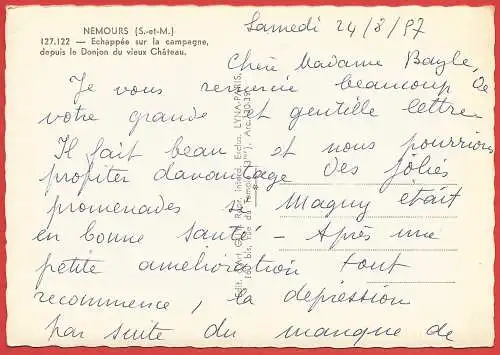 NEMOURS (S.-et-M.)
127.122 — Echappée sur la campagne,
depuis le Donjon du vieux Château.
Samedi 24/8/97
Chère Madame Bayle,
Je vous remercie beaucoup de
votre grande et gentille lettre
Il fait beau et nous pourrions
profiter davantage des jolies
promenades si Magny était
en bonne santé - Après une
petite amélioration tout
recommence, la dépression
par suite du manque de
Edit. d'Art GUY, Repr. Interd. Exclu. LYNA-PARIS,
(60 bis, rue du Temple (3me). Arc. 30-39)